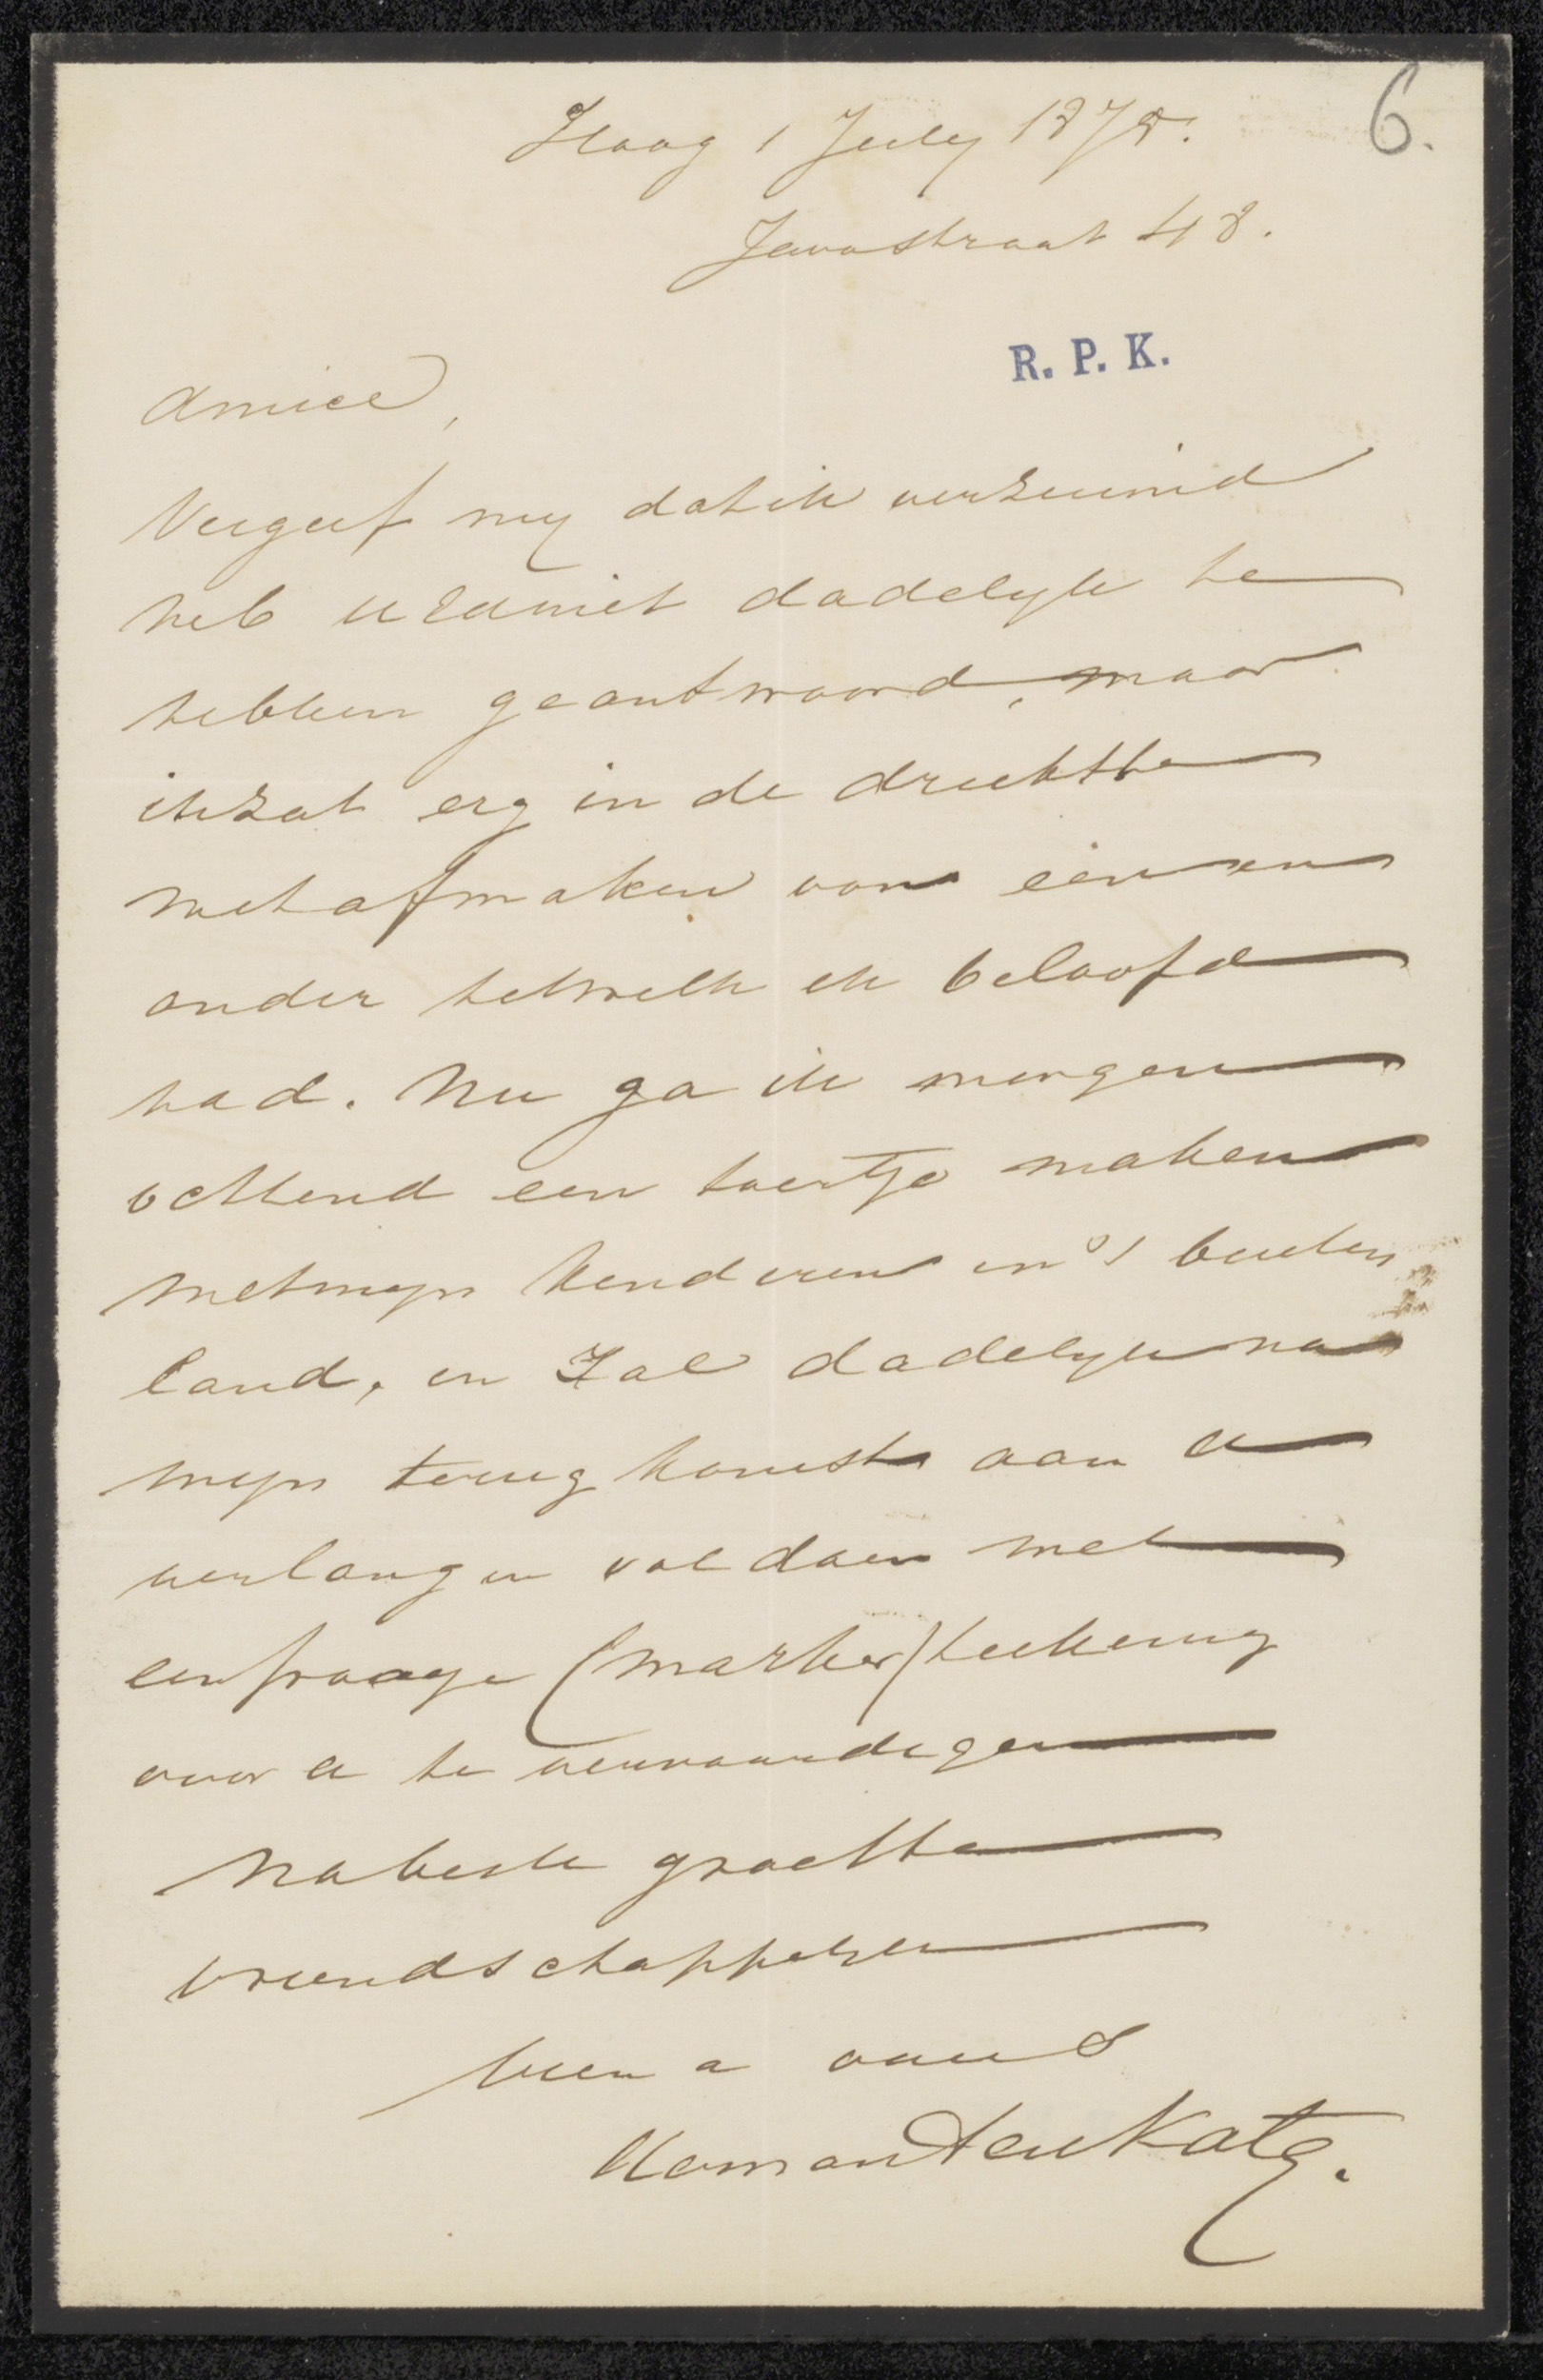 6.
Haag 1 July 1878.
Javastraat 48.
R. P. K.
Amice,
Vergeef my dat ik verzuimd
heb u Ed niet dadelyk te
hebben geantwoord, maar
ik zat erg in de drukte
met afmaken van een en
ander hetwelk ik beloofd
had. Nu ga ik morgen
ochtend een toertje maken
met myn kinderen in 't buiten
land, en zal dadelyk na
myn terugkomst aan u
verlangen voldoen met
een fraaye (Marker) teekening
voor u te vervaardigen
Na beste groette
vriendschappelyk
Herman ten Kate.